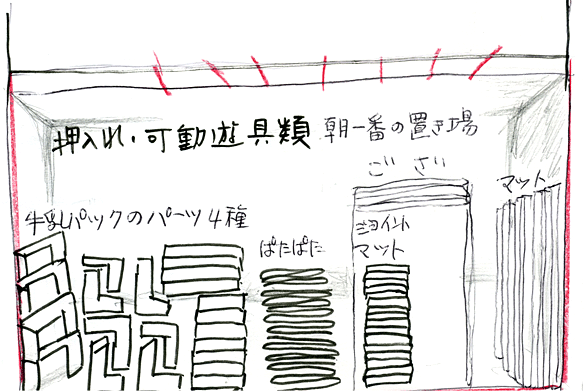 押入れ・可動遊具類 朝一番の置き場
ござ
マット
牛乳パックのパーツ4種
ぱたぱた
ジョイント
マット